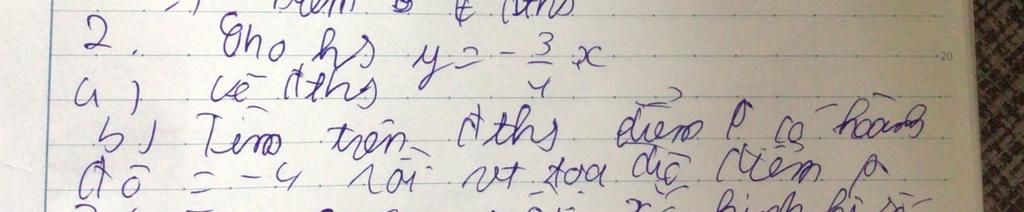 2. Cho hs y = - 3/4 x
a) vẽ đths
b) Tìm trên đths điểm P có hoành
độ = -4 rồi vt tọa độ điểm P